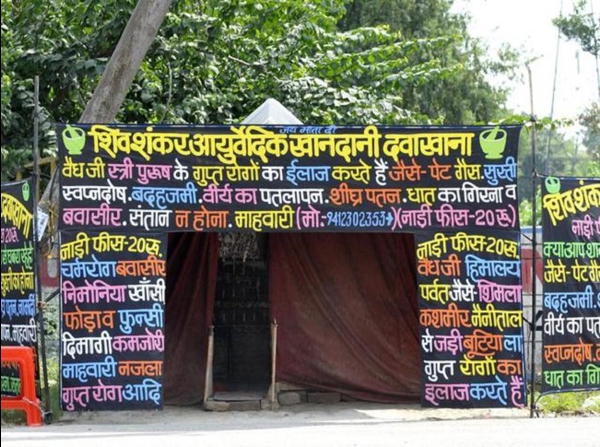 जय माता दी
शिव शंकर आयुर्वेदिक खानदानी दवाखाना
वैध जी स्त्री पुरूष के गुप्त रोगों का ईलाज करते हैं जैसे- पेट गैस. सुस्ती
स्वप्नदोष. बदहजमी. वीर्य का पतलापन. शीघ्र पतन. धात का गिरना व
बवासीर. संतान न होना. माहवारी (मो:-9412302353→)(नाड़ी फीस-20रु)
नाड़ी फीस-20रू
चर्मरोग बवासीर
निमोनिया खाँसी
फोड़ा व फुन्सी
दिमागी कमजोरी
माहवारी नजला
गुप्त रोग आदि
नाड़ी फीस-20रू.
वैध जी हिमालय
पर्वत जैसे- शिमला
कश्मीर. नैनीताल
से जड़ी बूटिया ला
गुप्त रोगों का
इलाज करते हैं
शिव शंक
नाड़ी
क्या आप
जैसे- पेट गै
बदहजमी.
वीर्य का पत
स्वप्नदोष.
धात का गि